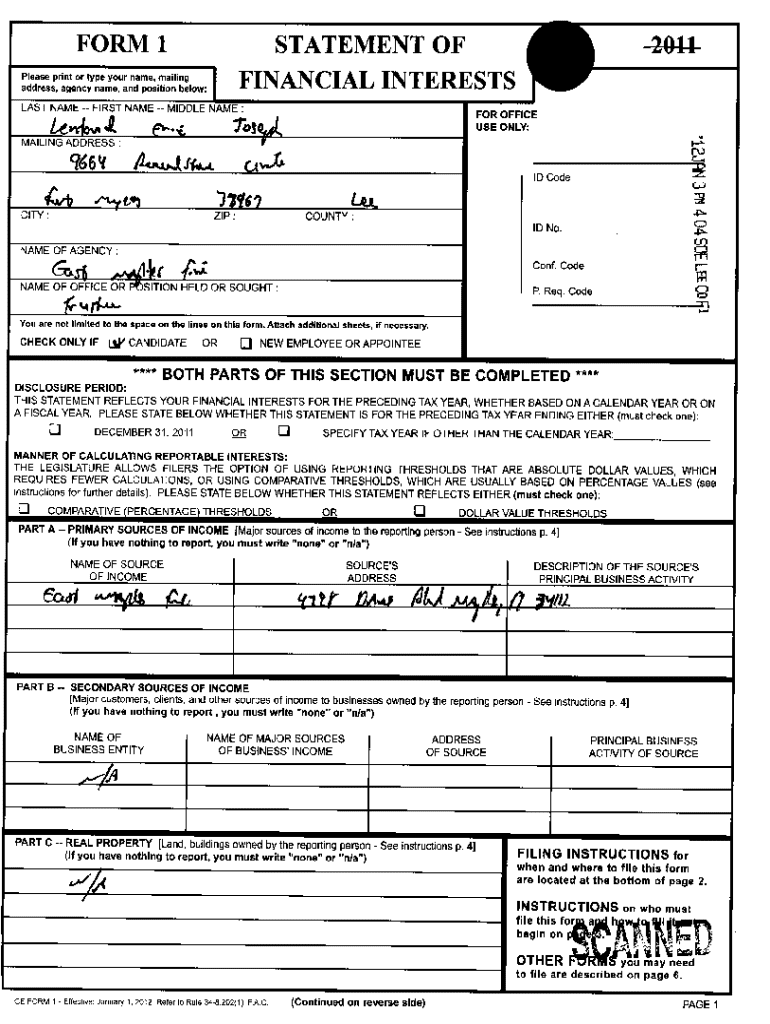 FORM 1 STATEMENT OF 2011
Please print or type your name, mailing
address, agency name, and position below:
FINANCIAL INTERESTS
LAST NAME -- FIRST NAME -- MIDDLE NAME :
Joseph
FOR OFFICE
USE ONLY:
MAILING ADDRESS :
9664
'12JAN 3 PM 4 04 SOE LEE CO Fl
ID Code
Lee
CITY : ZIP : COUNTY :
ID No.
NAME OF AGENCY :
East Naples Fire
Conf. Code
NAME OF OFFICE OR POSITION HELD OR SOUGHT :
P. Req. Code
You are not limited to the space on the lines on this form. Attach additional sheets, if necessary.
CHECK ONLY IF ☑ CANDIDATE OR ❑ NEW EMPLOYEE OR APPOINTEE
**** BOTH PARTS OF THIS SECTION MUST BE COMPLETED ****
DISCLOSURE PERIOD:
THIS STATEMENT REFLECTS YOUR FINANCIAL INTERESTS FOR THE PRECEDING TAX YEAR, WHETHER BASED ON A CALENDAR YEAR OR ON
A FISCAL YEAR. PLEASE STATE BELOW WHETHER THIS STATEMENT IS FOR THE PRECEDING TAX YEAR ENDING EITHER (must check one):
❑ DECEMBER 31, 2011 OR ❑ SPECIFY TAX YEAR IF OTHER THAN THE CALENDAR YEAR:
MANNER OF CALCULATING REPORTABLE INTERESTS:
THE LEGISLATURE ALLOWS FILERS THE OPTION OF USING REPORTING THRESHOLDS THAT ARE ABSOLUTE DOLLAR VALUES, WHICH
REQUIRES FEWER CALCULATIONS, OR USING COMPARATIVE THRESHOLDS, WHICH ARE USUALLY BASED ON PERCENTAGE VALUES (see
instructions for further details). PLEASE STATE BELOW WHETHER THIS STATEMENT REFLECTS EITHER (must check one):
❑ COMPARATIVE (PERCENTAGE) THRESHOLDS OR ❑ DOLLAR VALUE THRESHOLDS
PART A -- PRIMARY SOURCES OF INCOME [Major sources of income to the reporting person - See instructions p. 4]
(If you have nothing to report, you must write "none" or "n/a")
NAME OF SOURCE SOURCE'S DESCRIPTION OF THE SOURCE'S
OF INCOME ADDRESS PRINCIPAL BUSINESS ACTIVITY
East Naples Fire 34112
PART B -- SECONDARY SOURCES OF INCOME
[Major customers, clients, and other sources of income to businesses owned by the reporting person - See instructions p. 4]
(If you have nothing to report , you must write "none" or "n/a")
NAME OF NAME OF MAJOR SOURCES ADDRESS PRINCIPAL BUSINESS
BUSINESS ENTITY OF BUSINESS' INCOME OF SOURCE ACTIVITY OF SOURCE
N/A
PART C -- REAL PROPERTY [Land, buildings owned by the reporting person - See instructions p. 4]
(If you have nothing to report, you must write "none" or "n/a")
N/A
FILING INSTRUCTIONS for
when and where to file this form
are located at the bottom of page 2.
INSTRUCTIONS on who must
file this form and how to fill it
begin on page 3.
SCANNED
OTHER FORMS you may need
to file are described on page 6.
CE FORM 1 - Effective: January 1, 2012 Refer to Rule 34-8.202(1) F.A.C. (Continued on reverse side) PAGE 1